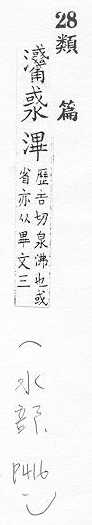 28
類篇
滭
吉切泉沸也或
省亦从畢文三
(水部 P416)